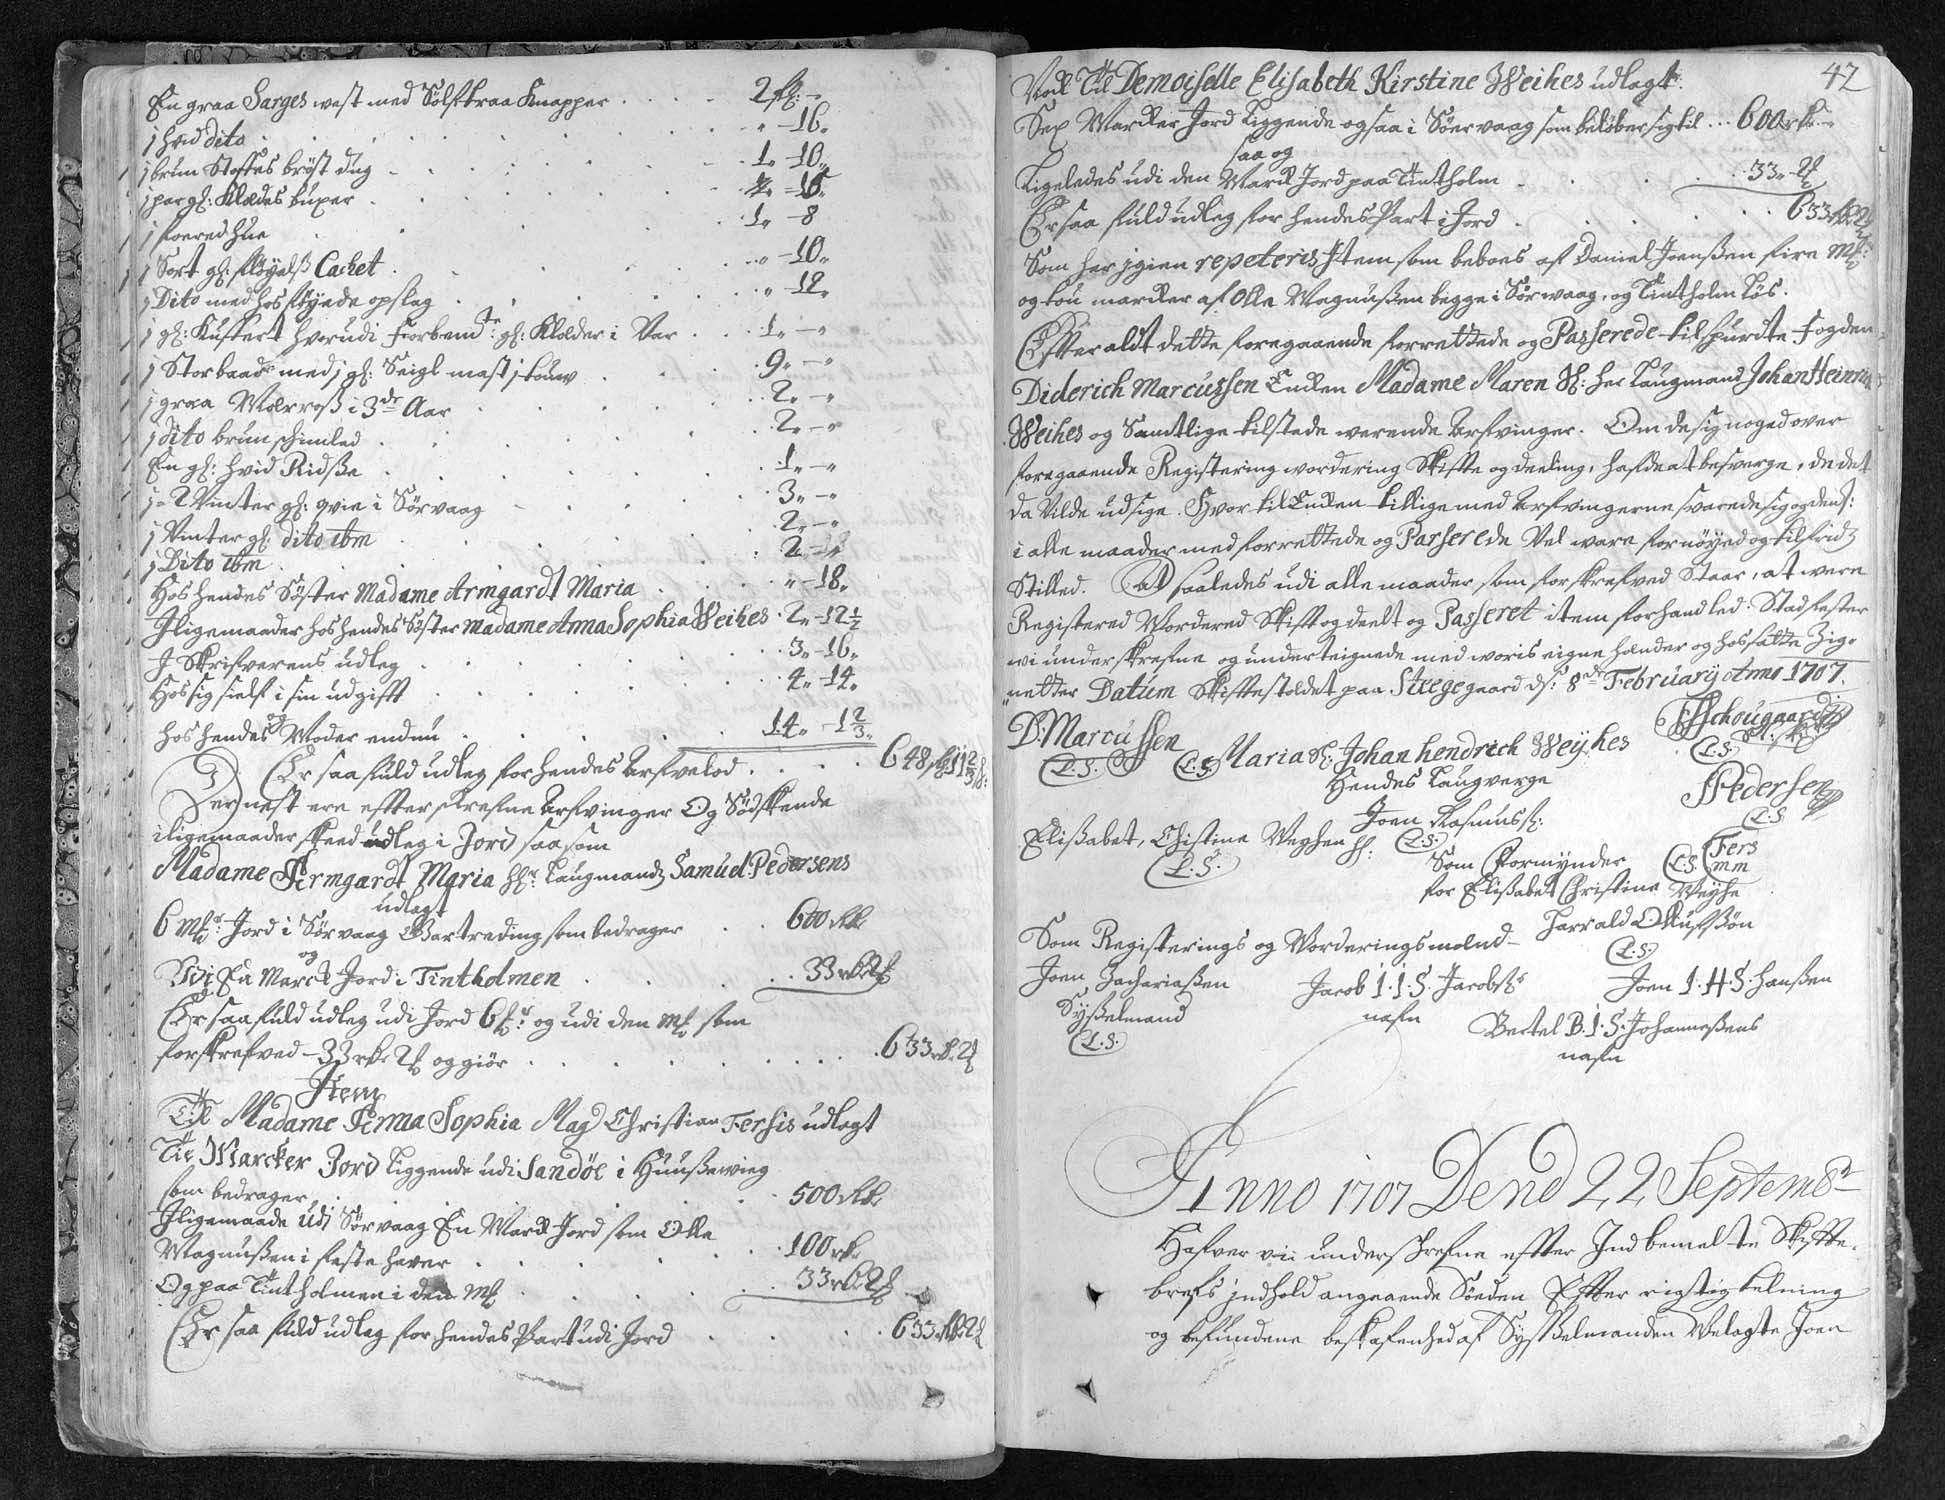 En graa Sarges west med Sølftraa Knapper . . . . 2 fl:
j hvid dito . . . „ - 16„
j brun Stoffes brøst dug . . . 1„ - 10„
j par gl: Klædes buxer . . .
j foered hue . . . 1„ - 8
j Sort gl: fløyels Casket . . . „ - 10„
j Dito med hos fløyede opslag . . . „ - 12„
j gl: Kuffert hvorudi Forbemte: gl: Klæder i Var . . . 1„ - „
j Storbaad med j gl: Seigl mast j touw . . . 9„ - „
j graa Mærross i 3de Aar . . . 2„ - „
j dito brun schimled . . . 2„ - „
En gl: hvid Ridsze . . . 1„ - „
j - 2 Vinter gl: qvie i Sørvaag . . . 3„ - „
j Vinter gl: dito ibm . . . 2„ - „
j Dito ibm . . .
Hos hendes Søster Madame Armgardt Maria . . . „ - 18„
Iligemaader hos hendes Søster Madame Anna Sophia Weihes . 2„ - 12½
I Skrifverens udleg . . . 3„ - 16„
Hos sig sielf i sin udgifft . . . 4„ - 14„
hos hendes Moder endnu . . . 14„ - 1⅔„
Er saa fuld udleg for hendes Arfvelod . . . 648 fl: 11⅔ s:
Dernest ere efterskrefne Arfvinger Og Sødskende
iligemaader skeed udleg i Jord saa som
Madame Armgardt Maria Hr: Laugmand Samuel Pedersens
udlagt
6 mk: Jord i Sørvaag Vartreding som bedrager . . 600 rdr
og
Udi En Marck Jord i Tintholmen . . . 33 rdr 2 mk
Er saa fuld udleg udi Jord 6 mk: og udi den mk som
forskrefved - 33 rdr 2 mk og giør . . . 633 rdr 2 mk
Item
Til Madame Anna Sophia Mag Christian Fersis udlagt
Tie Marcker Jord liggende udi Sandøe i Huusewieg
som bedrager . . . 500 rdr
Iligemaade udi Sørvaag En Marck Jord som Olle
Magnussen i feste haver . . . 100 rdr
Og paa Tintholmen i den mk . . . 33 rdr 2 mk
Er saa fuld udleg for hendes Part udi Jord . . . 633 rdr 2 mk
42
Nock Til Demoiselle Elisabeth Kirstine Weihes udlagt:
Sex Marcker Jord Liggende ogsaa i Sørvaag som beløber sig til . . . 600 rdr
saa og
Ligeledes udi den Marck Jord paa Tintholm . . . 33„ - 2 mk
Er saa fuld udleg for hendes Part i Jord . . . 633 rdr 2 mk
Som her igien repeteris Item som beboes af Daniel Joensen fire mk:
og tou marcker af Olle Magnussen begge i Sørwaag, og Tintholm løs.
Efter aldt dette foregaaende forrettede og Passerede tilspurdte Fogden
Diderich Marcussen Encken Madame Maren Sl: her Laugmand Johan Heinrich
Weihes og Samtlige tilstede werende Arfvinger. Om de sig noged over
foregaaende Registering wordering Skiffte og deeling, hafde at besverge, de det
da vilde udsige. Hvor til Encken tillige med Arfvingerne svarede sig og dens:
i alle maader med forrettede og Passerede Vel ware fornøyed og tilfrids
Stilled. At saaledes udi alle maader som forskrefved Staar, at were
Registered Wordered Skifft og deelt og Passeret item forhandled. Stadfester
wi underskrefne og underteignede med woris eigne hænder og hossatte Zig-
netter Datum Skifftestoldet paa Steegegaard ds: 8de February Anno 1707.
D: Marcussen
L.S.
L.S. Maria Sl: Johan hendrich Weyhes
Hendes Laugverge
Joen Rasmuss:
L.S.
Schougaard
L.S.
Pedersen
L.S
Elisabet, Christine Weyhen
L.S.
Som Formynder
for Elisabet Christine Weyhe
L.S. Fers
mm
Harrald Olufsøn
L.S.
Som Registerings og Worderingsmænd -
Joen Zachariassen
Sysselmand
L.S.
Jacob I. I. S. Jacobs:
nafn
Joen I. H. S. Hanssen
Bertel B. I. S. Johannesens
nafn
Anno 1707 Dend 22 Septembr
Hafver vii underschrefne effter Indbemelte Skiffte-
brefs indhold angaaende Søeden Effter rigtig telning
og befundene beskafenhed af Sysselmanden Velagte Joen